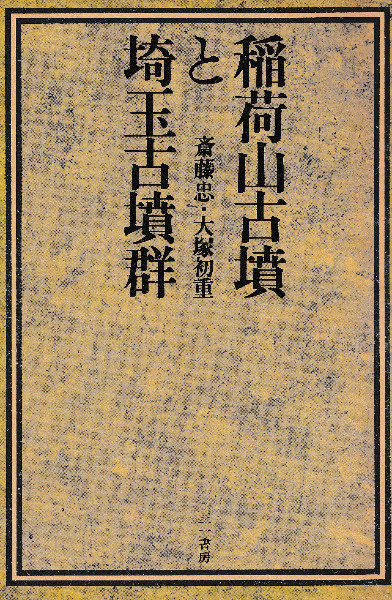 稲荷山古墳
と
埼玉古墳群
斎藤忠・大塚初重
三一書房